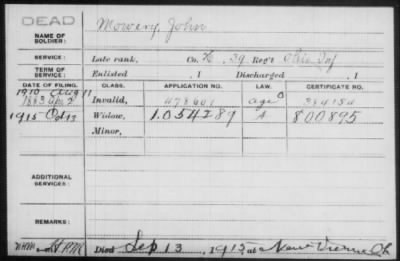 DEAD
NAME OF SOLDIER: Mowery, John
SERVICE: Late rank, Co. K, 39 Reg't Ohio Inf
TERM OF SERVICE: Enlisted , 1 Discharged , 1
DATE OF FILING. CLASS. APPLICATION NO. LAW. CERTIFICATE NO.
1910 Aug 11
1883 Apr 2 Invalid, age
1915 Oct 13 Widow, 1.054289 A 800895
Minor,
ADDITIONAL SERVICES:
REMARKS:
Died Sep 13, 1915 at New Vienna, Oh